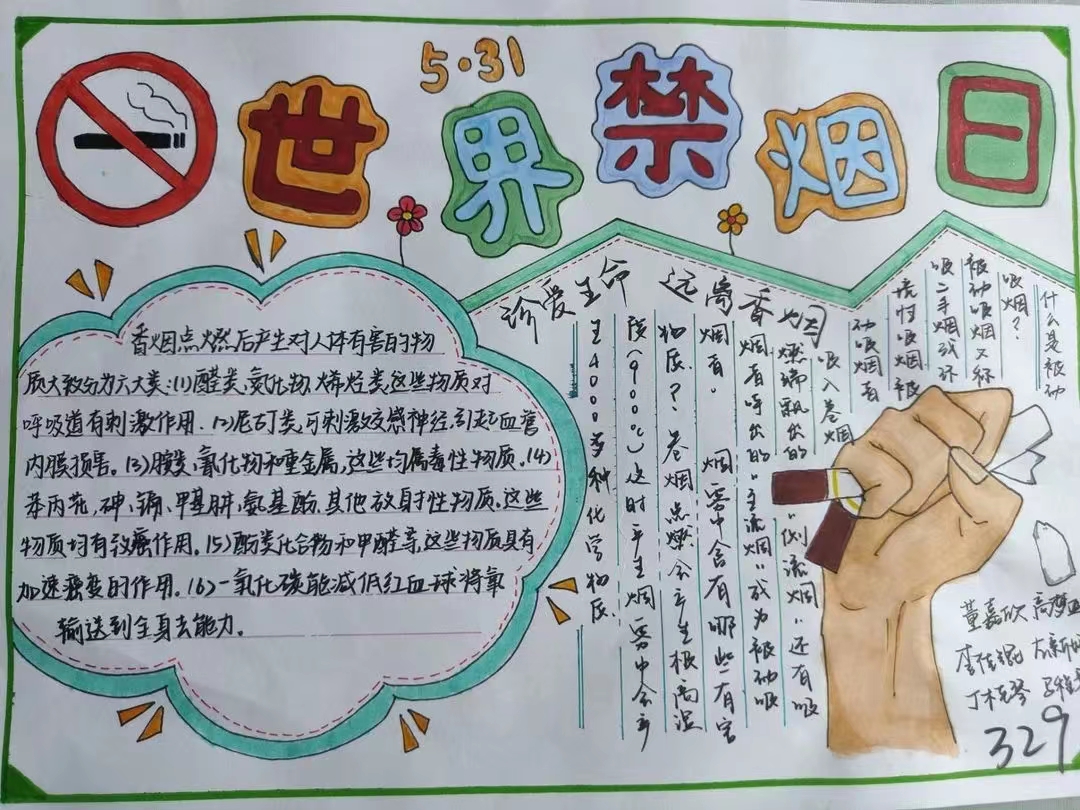 5·31
世界禁烟日
香烟点燃后产生对人体有害的物
质大致分为六大类:(1)醛类、氮化物、烯烃类,这些物质对
呼吸道有刺激作用.(2)尼古丁类,可刺激交感神经,引起血管
内膜损害。(3)胺类、氰化物和重金属,这些均属毒性物质.(4)
苯丙芘,砷、镉、甲基肼、氨基酚、其他放射性物质.这些
物质均有致癌作用.(5)酚类化合物和甲醛等,这些物质具有
加速癌变的作用.(6)一氧化碳能减低红血球将氧
输送到全身去能力.
珍爱生命 远离香烟
什么是被动
吸烟?
被动吸烟又称
吸二手烟或环
境性吸烟,被
动吸烟者
吸入卷烟
燃端飘出的“侧流烟”,还有吸
烟者呼出的“主流烟”成为被动吸
烟者。 烟雾中含有哪些有害
物质?卷烟点燃会产生极高温
度(900℃)这时产生烟雾中会产
生4000多种化学物质
董嘉欣 高梦
李佳锟
329